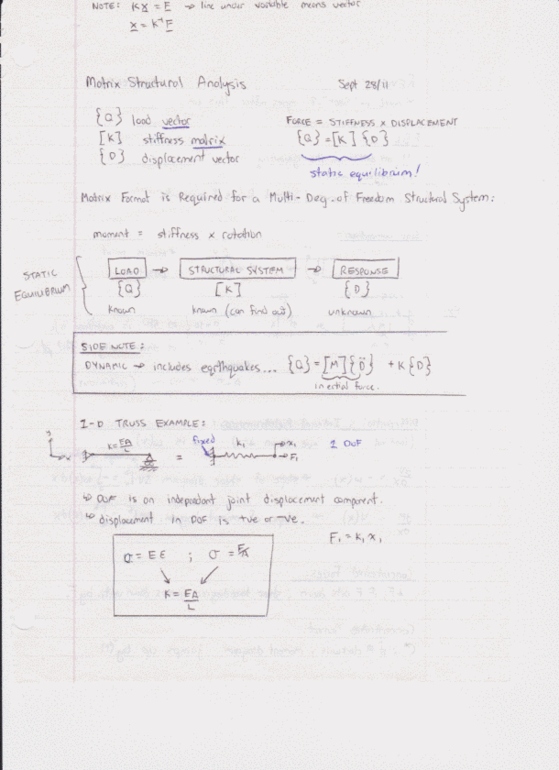 NOTE: Kx = F → line under variable means vector
x = K⁻¹F
Matrix Structural Analysis
Sept 28/11
{Q} load vector
[K] stiffness matrix
{D} displacement vector
FORCE = STIFFNESS x DISPLACEMENT
{Q} = [K] {D}
static equilibrium!
Matrix Format is Required for a Multi-Deg-of Freedom Structural System:
moment = stiffness x rotation
STATIC EQUILIBRIUM
LOAD → STRUCTURAL SYSTEM → RESPONSE
{Q} [K] {D}
known known (can find out) unknown
SIDE NOTE:
DYNAMIC → includes earthquakes... {Q} = [M]{D̈} + K{D}
inertial force.
1-D TRUSS EXAMPLE:
y
x
K = EA/L
=
fixed
k₁
x₁
F₁
1 DOF
↳ DOF is an independant joint displacement component.
↳ displacement in DOF is +ve or -ve.
F₁ = k₁ x₁
σ = Eε ; σ = F/A
K = EA/L